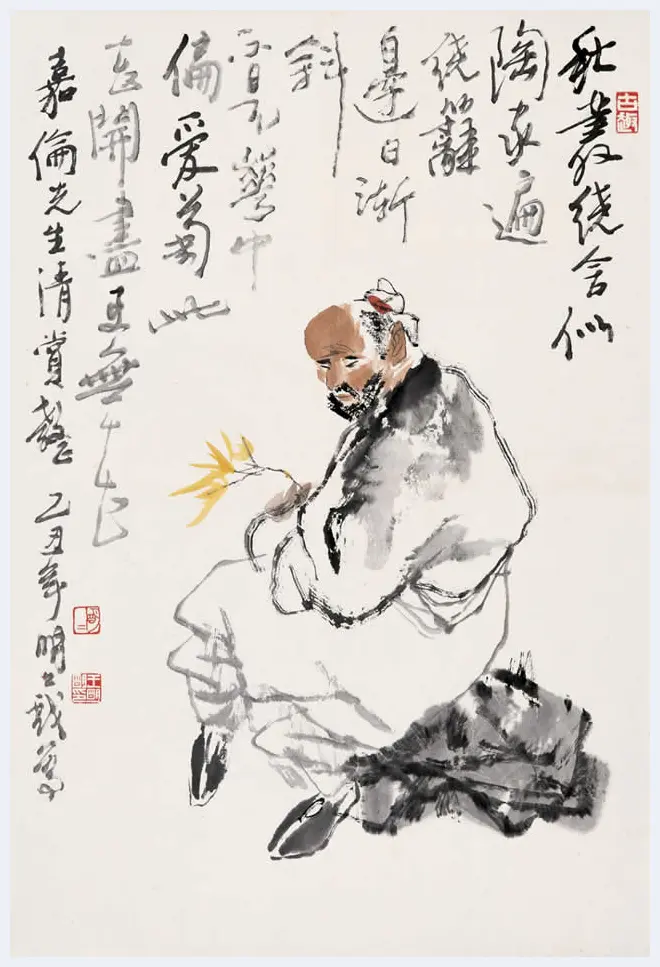 秋叢绕舍似
陶家遍
绕籬
邊日漸
斜
不是華中
偏愛菊此
花開盡更無花
嘉倫先生清賞 己丑年明明戲
古趣